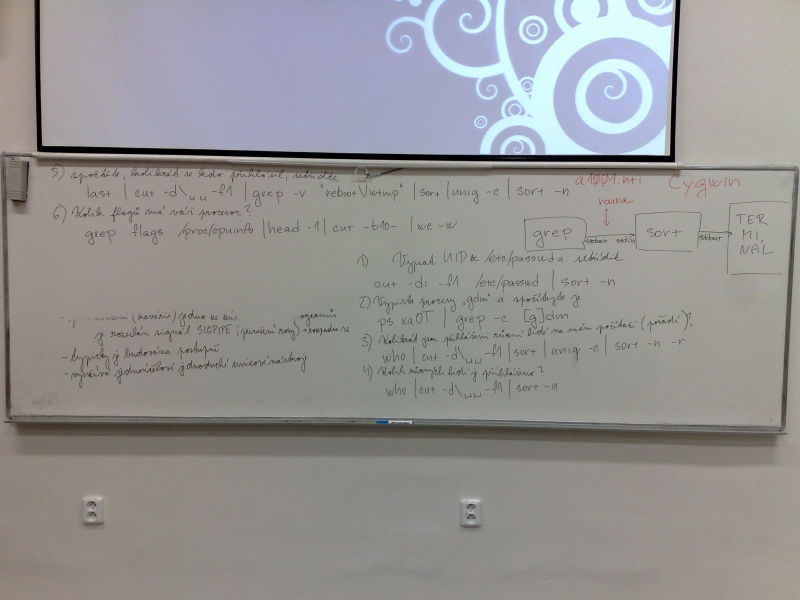 5) spočtěte, kolikrát se kdo přihlásil, setřiďte
last | cut -d\␣␣ -f1 | grep -v "reboot\|wtmp" | sort | uniq -c | sort -n
6) Kolik flagů má váš procesor?
grep flags /proc/cpuinfo | head -1 | cut -b10- | wc -w
a1001.nti Cygwin
roura
grep stdout stdin sort stdout TER
MI,
NÁL
1) Vypsat UID z /etc/passwd a setřídit
cut -d: -f1 /etc/passwd | sort -n
2) Vypište procesy "gdm" a spočítejte je
ps xaOT | grep -c [g]dm
3) Kolikrát jsou přihlášeni různí lidé na mém počítači (pořadí)?
who | cut -d\␣␣ -f1 | sort | uniq -c | sort -n -r
4) Kolik různých lidí je přihlášeno?
who | cut -d\␣␣ -f1 | sort -n
(havárii) jedno ze
je rozeslán signál SIGPIPE
- typicky je budována postupně
- využívá jednoúčelové jednoduché unixové nástroje